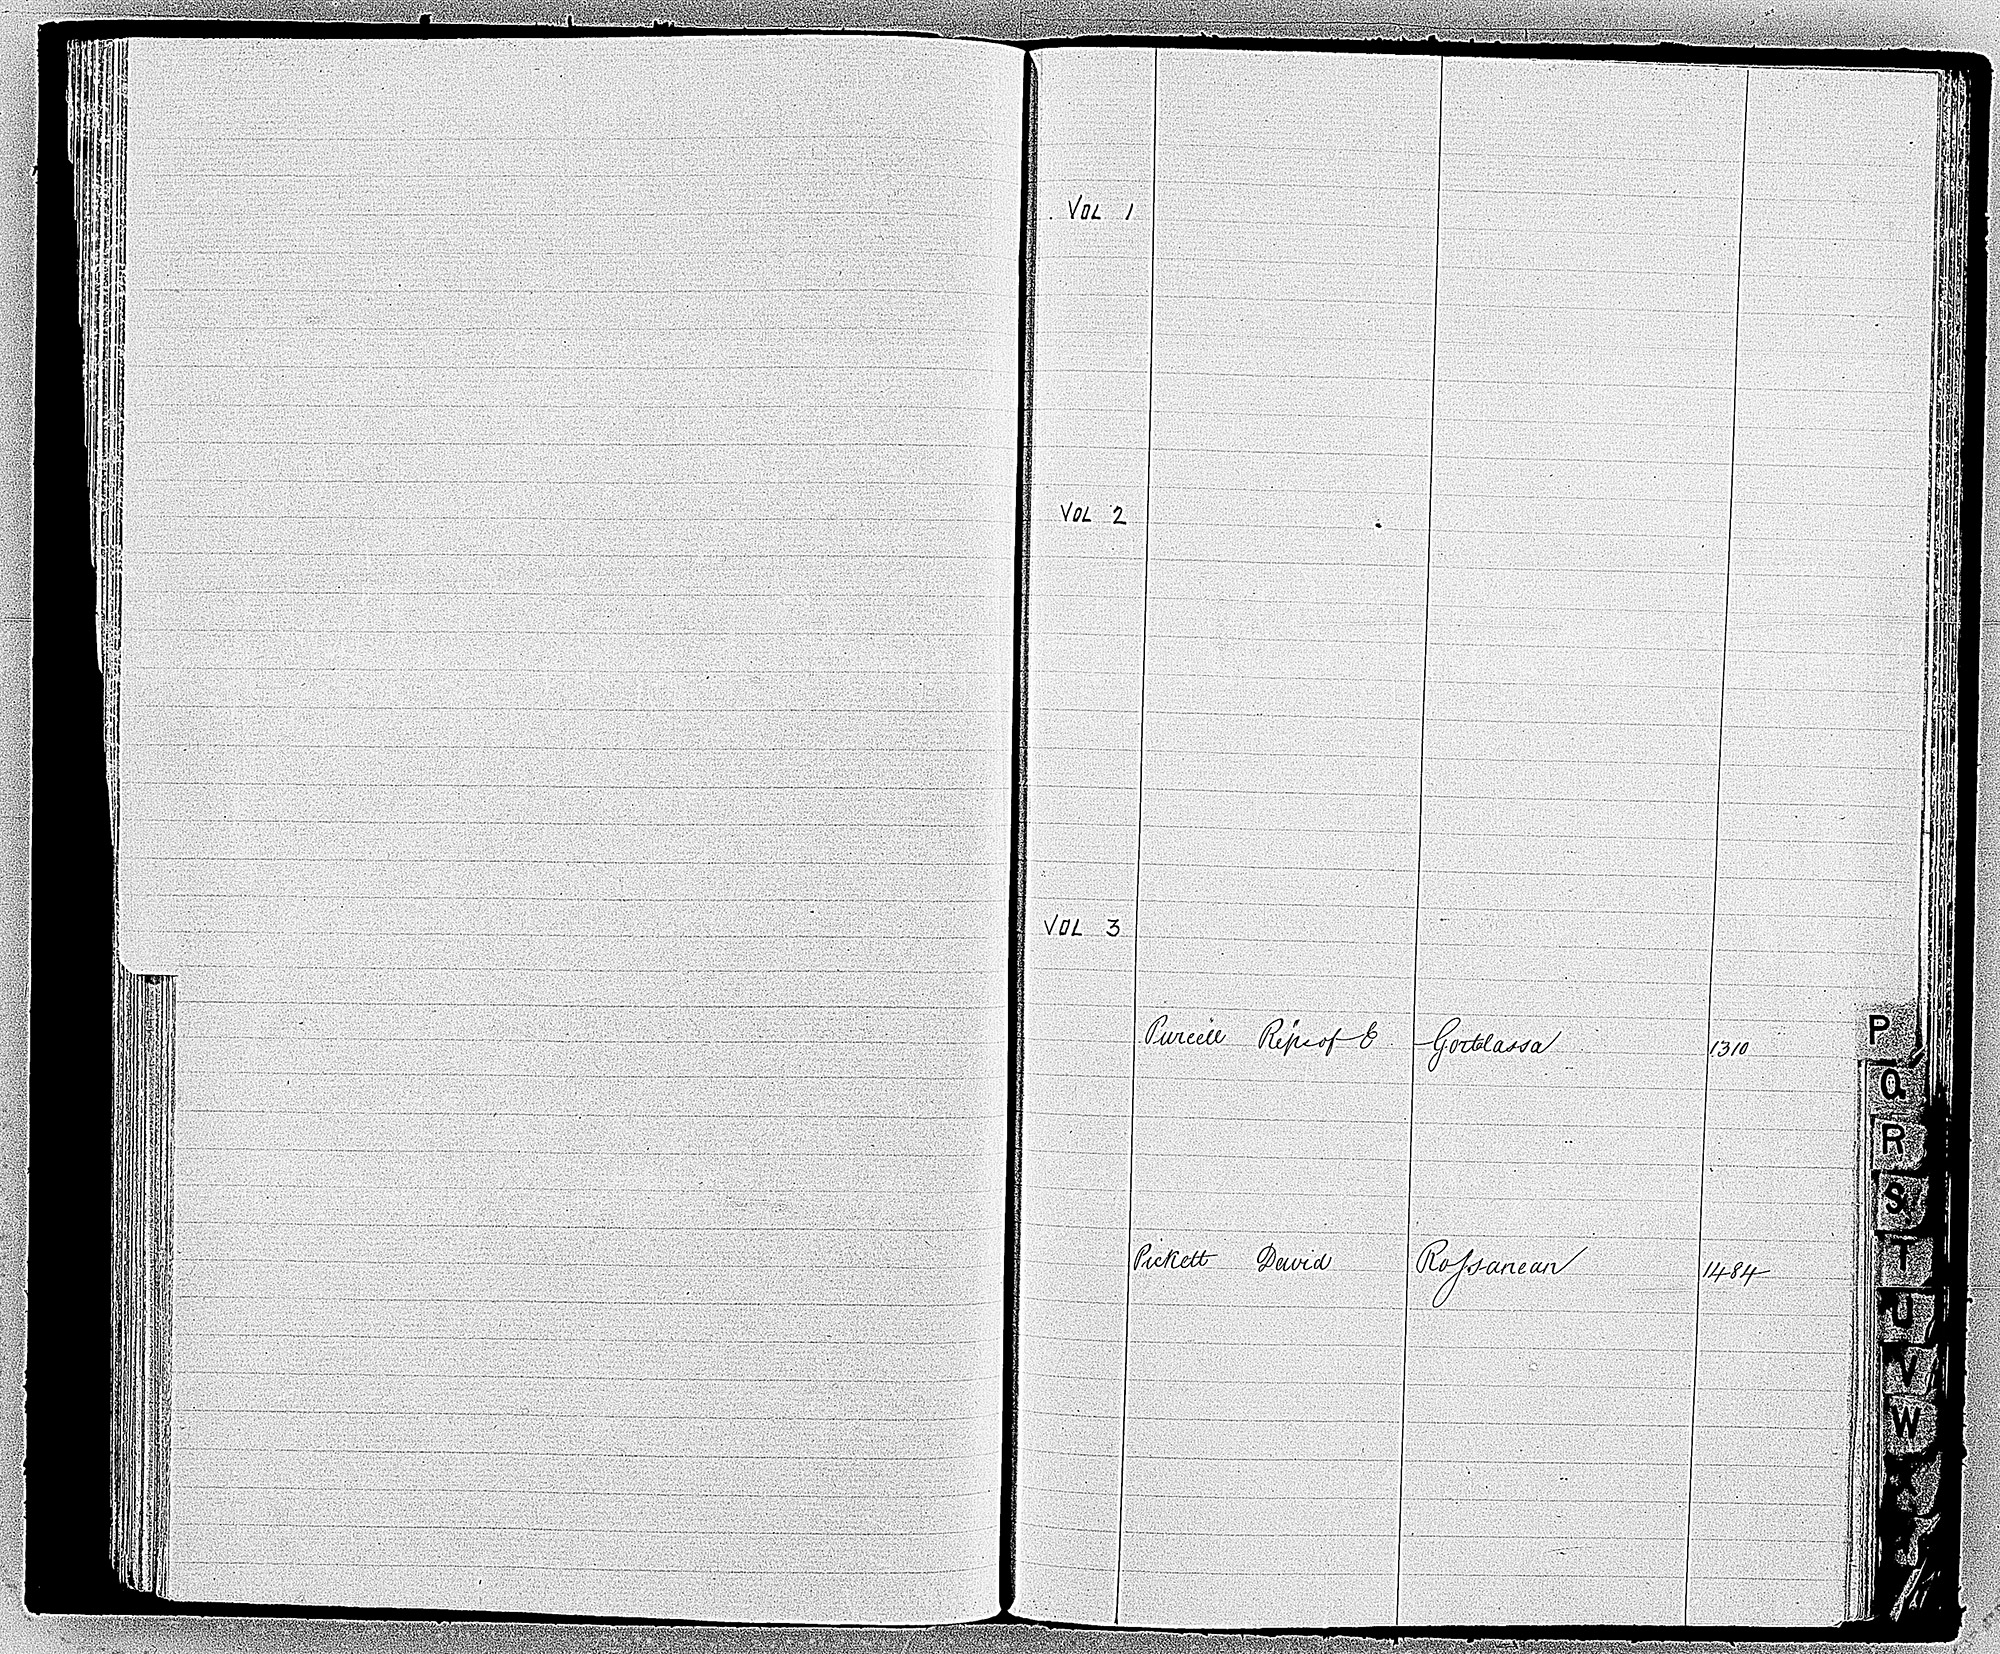 VOL 1
VOL 2
VOL 3
Purcell Reps of E Gortclassa 1310
Pickett David Rossanean 1484
P
Q
R
S
T
U
V
W